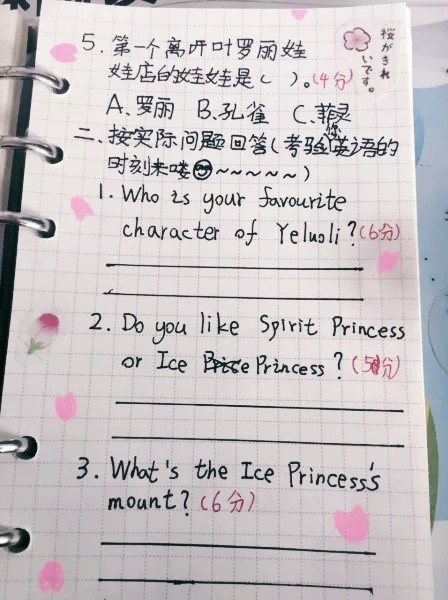 桜がきれ
いです。
5. 第一个离开叶罗丽娃
娃店的娃娃是( )。(4分)
A.罗丽 B.孔雀 C.菲灵
二、按实际问题回答(考验你英语的
时刻来喽😎~~~~~)
1. Who is your favourite
character of Yeluoli?(6分)
2. Do you like Spirit Princess
or Ice Princess?(5分)
3. What's the Ice Princess's
mount?(6分)